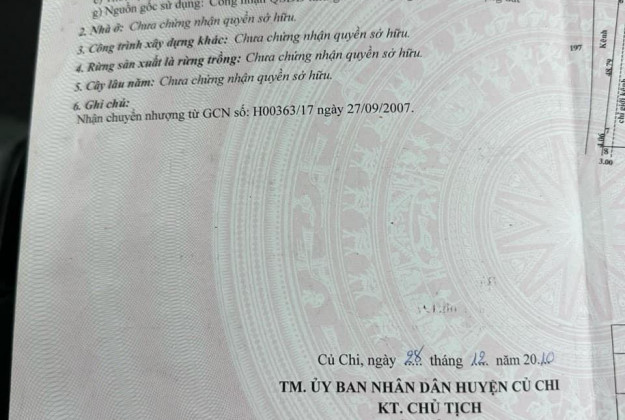 g) Nguồn gốc sử dụng: Công nhận
2. Nhà ở: Chưa chứng nhận quyền sở hữu.
3. Công trình xây dựng khác: Chưa chứng nhận quyền sở hữu.
4. Rừng sản xuất là rừng trồng: Chưa chứng nhận quyền sở hữu.
5. Cây lâu năm: Chưa chứng nhận quyền sở hữu.
6. Ghi chú:
Nhận chuyển nhượng từ GCN số: H00363/17 ngày 27/09/2007.
197
Kênh
48.79
4.06
3.00
Củ Chi, ngày 28 tháng 12 năm 2010
TM. ỦY BAN NHÂN DÂN HUYỆN CỦ CHI
KT. CHỦ TỊCH